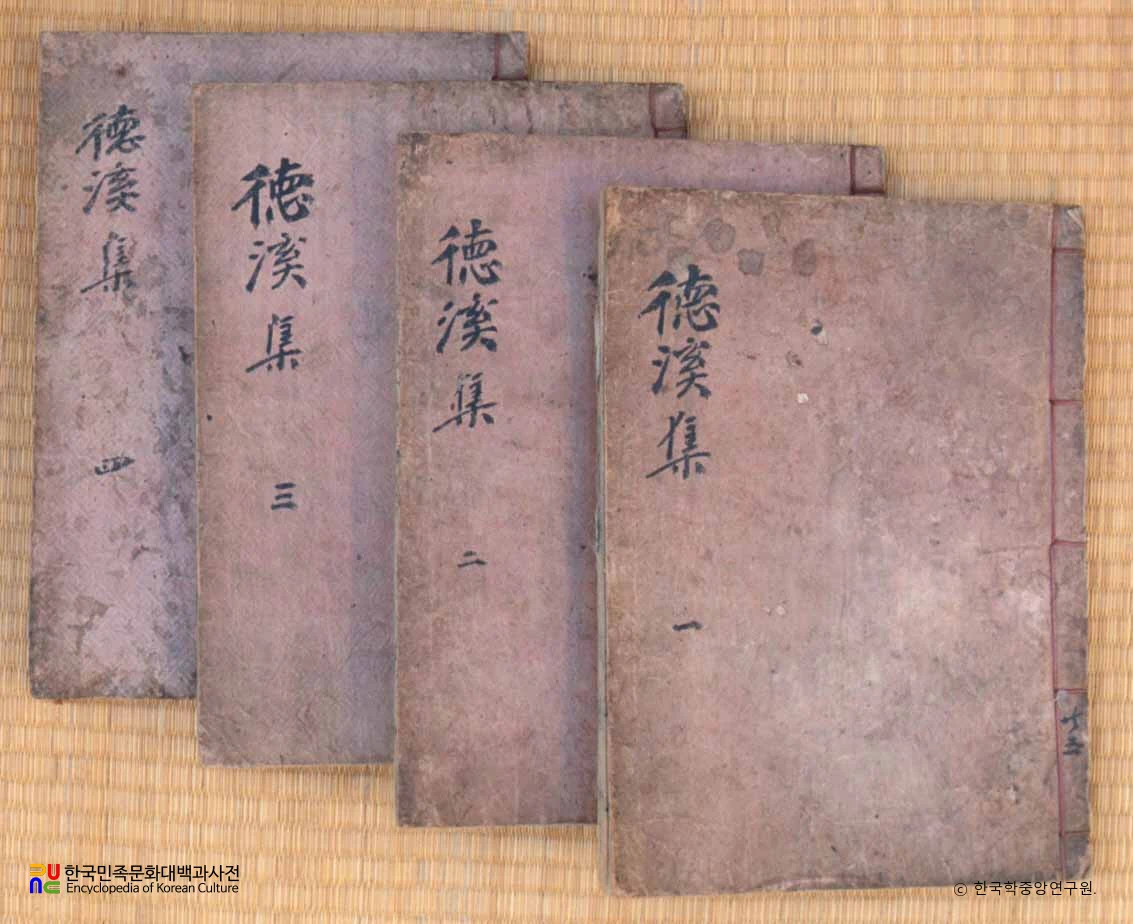 德溪集 一
德溪集 二
德溪集 三
德溪集 四
한국민족문화대백과사전
Encyclopedia of Korean Culture
© 한국학중앙연구원.